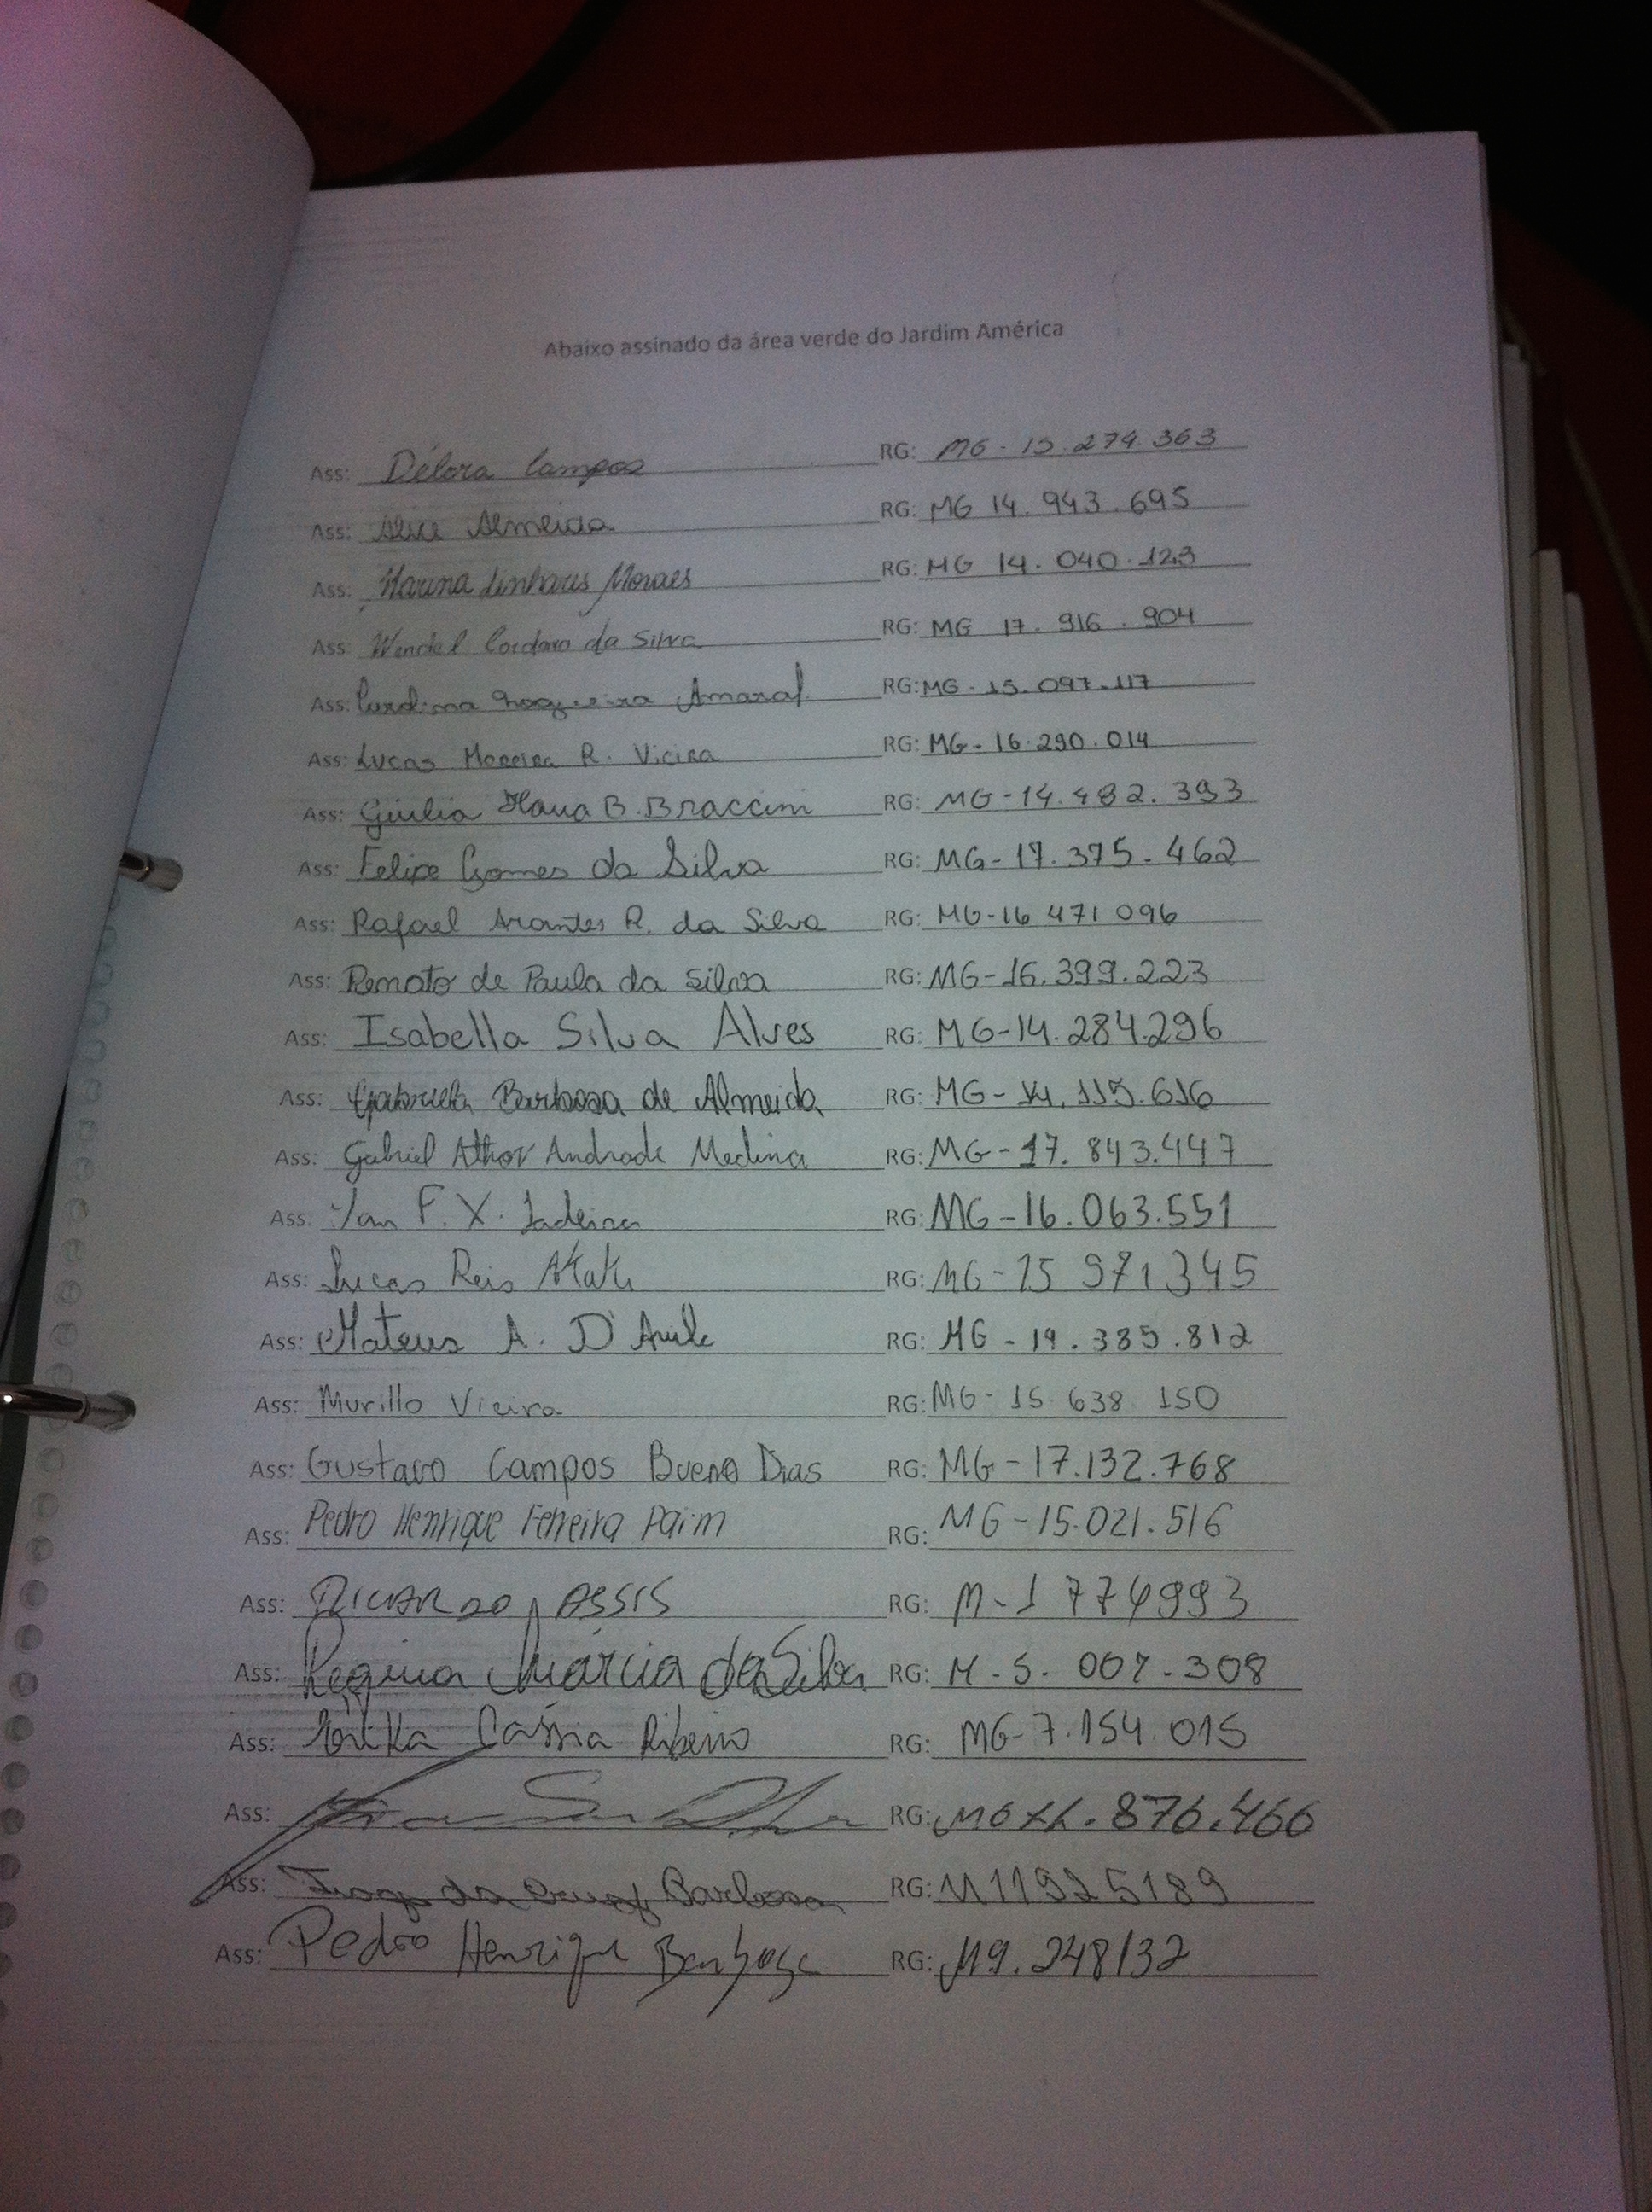 Abaixo assinado da área verde do Jardim América
Ass: Débora Campos RG: MG-15.274.363
Ass: Alice Almeida RG: MG 14.943.695
Ass: Marina Linhares Moraes RG: MG 14.040.123
Ass: Wendel Cordoro da Silva RG: MG 17.916.904
Ass: Carolina Nogueira Amaral RG: MG-15.097.117
Ass: Lucas Moreira R. Vieira RG: MG-16.290.014
Ass: Giulia B. Braccini RG: MG-14.482.393
Ass: Felipe Gomes da Silva RG: MG-17.375.462
Ass: Rafael Arantes R. da Silva RG: MG-16 471 096
Ass: Renato de Paula da Silva RG: MG-16.399.223
Ass: Isabella Silva Alves RG: MG-14.284.296
Ass: Gabriela Barbosa de Almeida RG: MG-14.115.616
Ass: Gabriel Athor Andrade Medina RG: MG-17.843.447
Ass: Yan F. X. Ladeira RG: MG-16.063.551
Ass: Lucas Reis RG: MG-15 971345
Ass: Mateus A. RG: MG-19.385.812
Ass: Murillo Vieira RG: MG-15 638 150
Ass: Gustavo Campos Bueno Dias RG: MG-17.132.768
Ass: Pedro Henrique Ferreira Paim RG: MG-15.021.516
Ass: RICARDO ASSIS RG: M-1 774993
Ass: Regina Márcia da Silva RG: M-5.007.308
Ass: Erika Cássia Ribeiro RG: MG-7.154.015
Ass: RG: .876.466
Ass: Tiago da Barbosa RG: M11925189
Ass: Pedro Henrique Barbosa RG: M9.248132